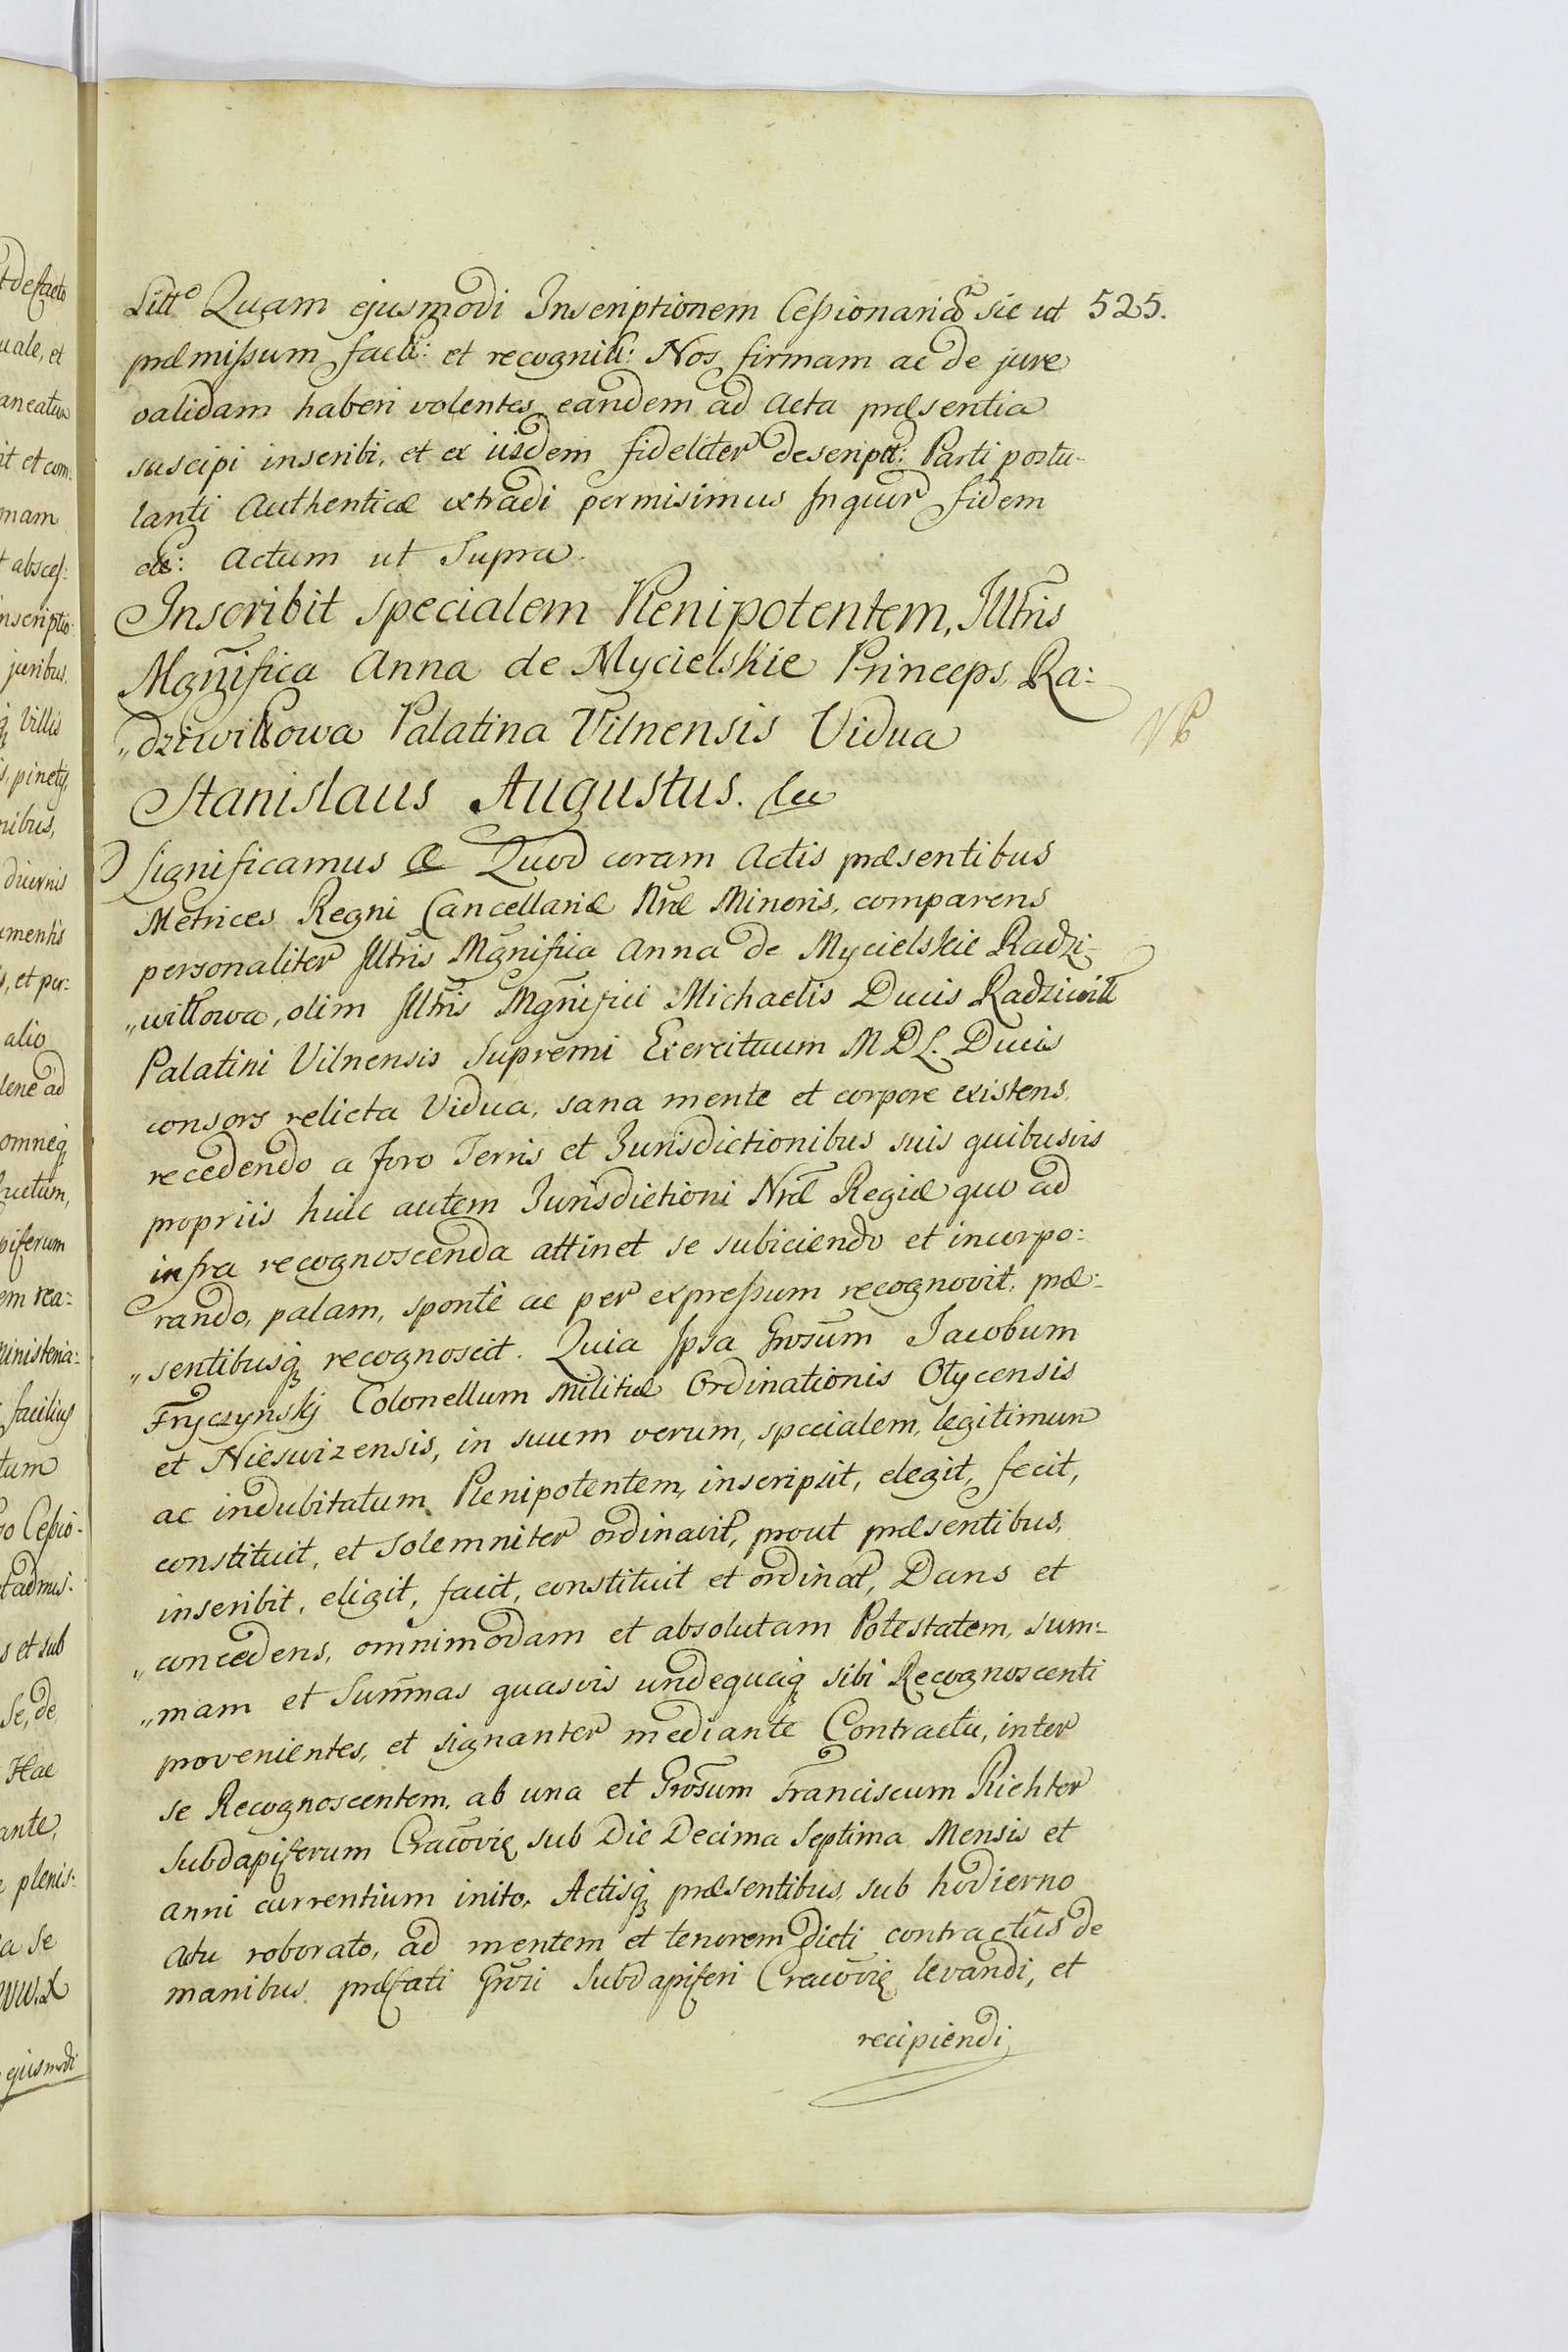 Litt. Quam ejusmodi Inscriptionem Cessionariam sic ut 525.
præmissum facti: et recogniti: Nos firmam ac de jure
validam haberi volentes eandem ad Acta præsentia
suscipi inscribi, et ex iisdem fideliter descript: Parti postu-
lanti Authenticæ extradi permisimus In quor fidem
etc: Actum ut Supra.
Inscribit Specialem Plenipotentem, Illtris
Mgnifica Anna de Mycielskie Princeps Ra:
„dziwiłłowa Palatina Vilnensis Vidua
NB
Stanislaus Augustus. etc
Significamus etc Quod coram Actis præsentibus
Metrices Regni Cancellariæ Nræ Minoris, comparens
personaliter Illtris Mgnifica Anna de Mycielskie Radzi-
„wiłłowa, olim Illtris Mgnifici Michaelis Ducis Radziwill
Palatini Vilnensis Supremi Exercituum M D L. Ducis
consors relicta Vidua, sana mente et corpore existens,
recedendo a foro Terris et Jurisdictionibus suis quibusvis
propriis huic autem Jurisdictioni Nræ Regiæ quo ad
infra recognoscenda attinet se subiciendo et incorpo:
rando, palam, sponte ac per expressum recognovit, præ:
„sentibusq recognoscit. Quia Ipsa Grosum Jacobum
Fryczynskj Colonellum Militiæ Ordinationis Olycensis
et Niesvizensis, in suum verum, specialem, legitimum
ac indubitatum Plenipotentem, inscripsit, elegit, fecit,
constituit, et solemniter ordinavit, prout præsentibus,
inscribit, eligit, facit, constituit et ordinat, Dans et
„concedens, omnimodam et absolutam Potestatem, sum:
„mam et Sum̃as quasvis undequaq sibi Recognoscenti
provenientes, et signanter mediante Contractu, inter
se Recognoscentem, ab una et Grosum Franciscum Richter
Subdapiferum Cracovię sub Die Decima Septima Mensis et
anni currentium inito, Actisq præsentibus, sub hodierno
actu roborato, ad mentem et tenorem dicti contractûs de
manibus præfati Grosi Subdapiferi Cracovię levandi, et
recipiendi